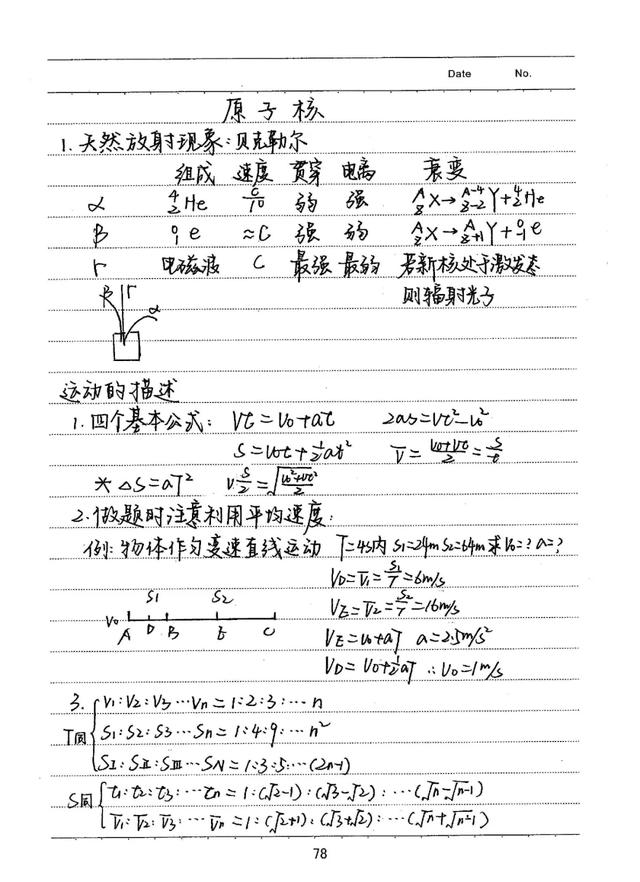 Date No.
原子核
1. 天然放射现象：贝克勒尔
组成 速度 贯穿 电离 衰变
α ⁴₂He C/10 弱 强 ᴬ₈X→ᴬ⁻⁴₈₋₂Y+⁴₂He
β ⁰₁e ≈C 强 弱 ᴬ₈X→ᴬ₈₊₁Y+⁰₋₁e
r 电磁波 C 最强 最弱 若新核处于激发态
则辐射光子
β r α
运动的描述
1. 四个基本公式： Vt=V₀+at 2as=Vt²-V₀²
S=V₀t+½at² V̅=(V₀+Vt)/2=S/t
* △S=aT² V S/2=√((V₀²+Vt²)/2)
2. 做题时注意利用平均速度：
例：物体作匀变速直线运动 T=4S内 S₁=24m S₂=64m 求V₀=? a=?
V_D=V̅₁=S₁/T=6m/s
S₁ S₂
V_E=V̅₂=S₂/T=16m/s
V₀ A D B E C
V_E=V₀+aT a=2.5m/s²
V_D=V₀+½aT ∴V₀=1m/s
3. V₁:V₂:V₃…Vn=1:2:3:…n
T同 S₁:S₂:S₃…Sn=1:4:9:…n²
SⅠ:SⅡ:SⅢ…SN=1:3:5:…(2n-1)
S同 t₁:t₂:t₃:…tn=1:(√2-1):(√3-√2):…(√n-√n-1)
V̅₁:V̅₂:V̅₃:…V̅n=1:(√2+1):(√3+√2):…(√n+√n-1)
78